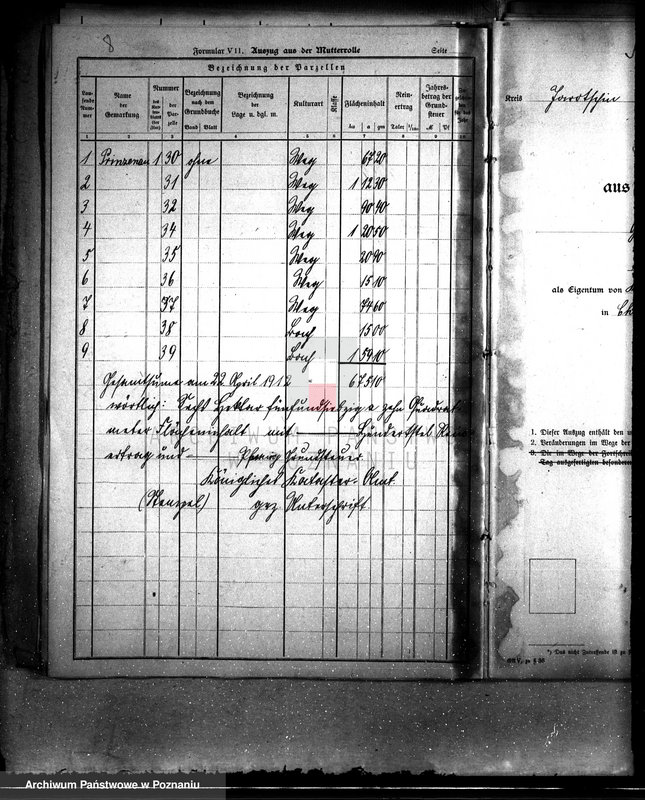 8
Formular VII. Auszug aus der Mutterrolle Seite
Bezeichnung der Parzellen
Laufende Nummer | Name der Gemarkung | Nummer des Kartenblatts (der Flur) | der Parzelle | Bezeichnung nach dem Grundbuche Band Blatt | Bezeichnung der Lage u. dgl. m. | Kulturart | Klasse | Flächeninhalt ha a qm | Reinertrag Taler 1/100 | Jahresbetrag der Grundsteuer M Pf
1 2 3 4 5 6 7 8 9 10
1 Prinzenau 1 30 ohne Weg 67 20
2 31 Weg 1 12 30
3 32 Weg 90 40
4 34 Weg 1 20 50
5 35 Weg 20 90
6 36 Weg 15 10
7 37 Weg 74 60
8 38 Bach 15 00
9 39 Bach 1 59 10
Gesamtsumme am 22 April 1912 6 75 10
wörtlich: Sechs Hektar fünfundsiebzig a zehn Quadrat
meter Flächeninhalt mit — Hundertstel Rein
ertrag und — Pfennig Grundsteuer
Königliches Kataster-Amt
(Stempel) gez Unterschrift
Kreis Jarotschin
aus
als Eigentum von
in
1. Dieser Auszug enthält den
2. Veränderungen im Wege der
3. Die im Wege der Fortschrei
Tag ausgefertigten besondere
*) Das nicht Zutreffende ist zu
Archiwum Państwowe w Poznaniu